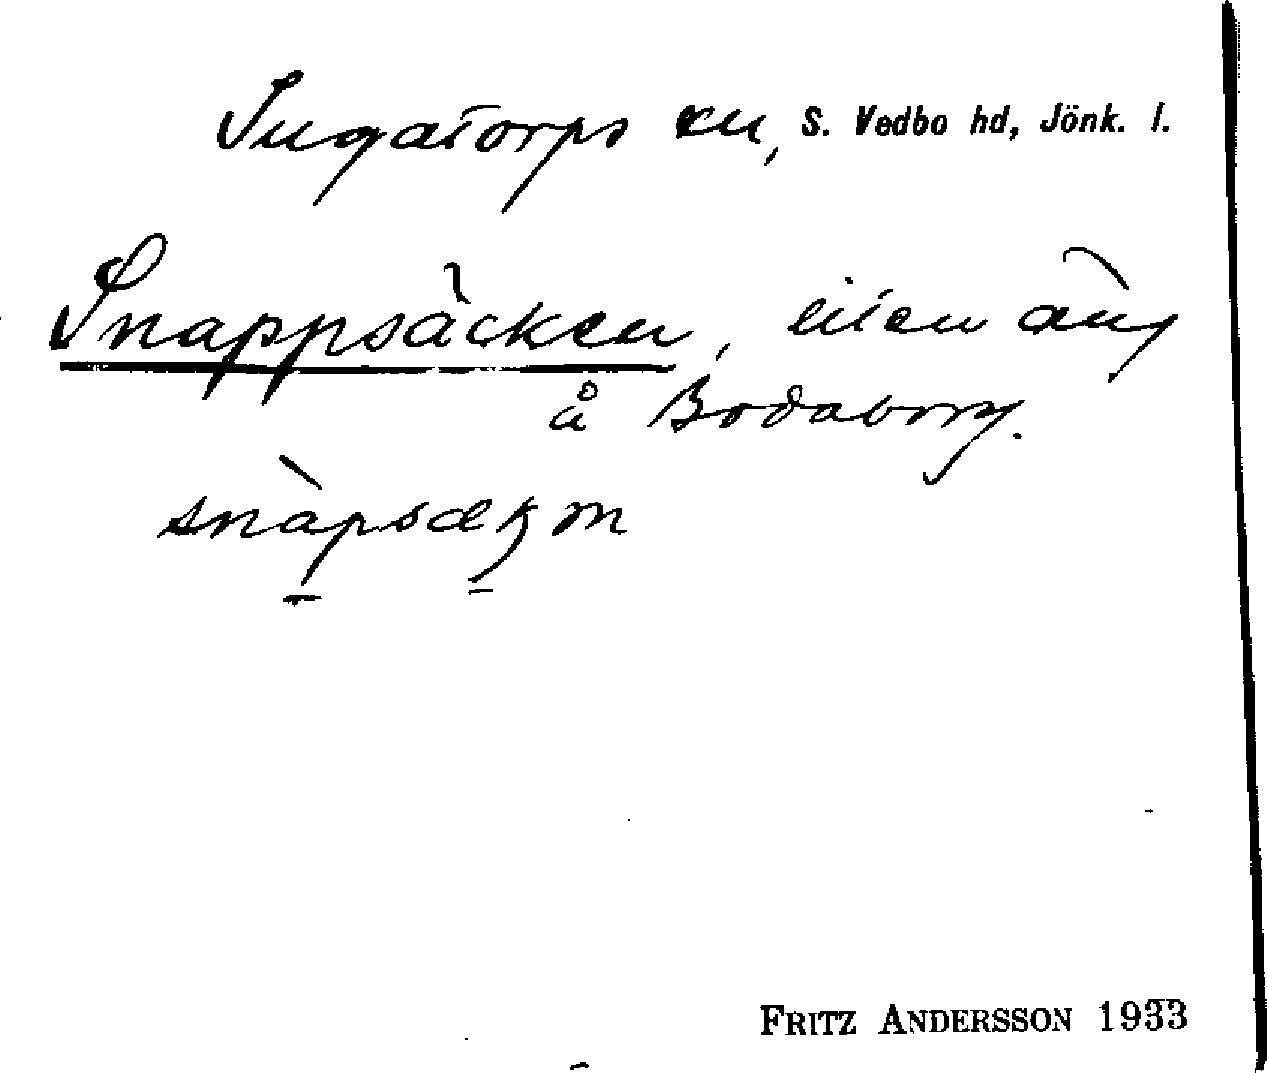 Ingatorps sn, S. Vedbo hd, Jönk. l.
Snappsäcken, liten äng
å Bodaborg.
snàpsækɳ m
FRITZ ANDERSSON 1933